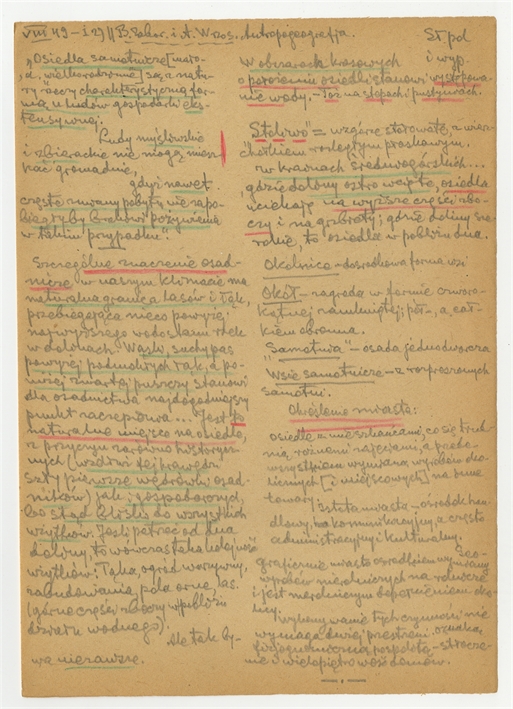 VIII 49 – i 29 || B. Zabor. i A. Waos. Antropogeografja.
St. pd
i wyp.
„Osiedla samotnicze [maro-
, d. wielkorodzinne] są, a natu-
ry rzeczy charakterystyczną for-
mą u ludów gospodarki eks-
tensywnej.
Ludy myśliwskie
i zbierackie nie mogą miesz-
kać gromadnie,
gdyż nawet
częste zmiany pobytu nie zapo-
biegłyby brakowi pożywienia
w takim przypadku".
Szczególne znaczenie osad-
nicze w naszym klimacie ma
naturalna granica lasów i łąk,
przebiegająca nieco powyżej
najwyższego wodostanu rzek
w dolinach. Wąski, suchy pas
powyżej podmokłych łąk, a po-
niżej zwartej puszczy stanowi
dla osadnictwa najdogodniejszy
punkt zaczepienia... Jest to
naturalne miejsce na osiedle,
z przyczyn zarówno historycz-
nych (wzdłuż tej krawędzi
szły pierwsze wędrówki osad-
ników) jak i gospodarczych,
bo stąd blisko do wszystkich
użytków. Jeśli patrzeć od dna
doliny, to wówczas taka kolejność
użytków: łąka, ogród warzywny,
zabudowania, pola orne, las.
(górne części zboczy w pobliżu
działu wodnego).
Ale tak by-
wa nie zawsze.
W obszarach krasowych
o położeniu osiedli stanowi występowa-
nie wody. – Toż na stepach i pustyniach.
„Stoliwo" = wzgórze stołowate, z wierz-
chołkiem rozległym płaskowym.
W krainach średniogórskich...
gdzie doliny ostro wcięte, osiedla
uciekają na wyższe części zbo-
czy i na grzbiety; gdzie doliny sze-
rokie, to osiedla w pobliżu dna.
Okolnica – dośrodkowa forma wsi
Okół – zagroda w formie czworo-
kątnej zamkniętej; pół-, a cał-
kiem obronna.
„Samotnia" – osada jednodworcza
Wsie samotnicze – z rozproszonych
samotni.
Określenie miasta:
osiedle z mieszkańcami, co się trud-
nią różnymi zajęciami, a przede-
wszystkiem wymianą wyrobów oko-
licznych [i miejscowych] na inne
towary.
Istota miasta – ośrodek han-
dlowy, bo komunikacyjny, a często
administracyjny i kulturalny.
Geo-
graficznie miasto ośrodkiem wymiany
wyrobów nierolniczych na rolnicze
i jest nierolniczym dopełnieniem oko-
licy.
Wykonywanie tych czynności nie
wymaga dużej przestrzeni, oznaka
fizjognomiczna pospolita – stłocze-
nie i wielopiętrowość domów.